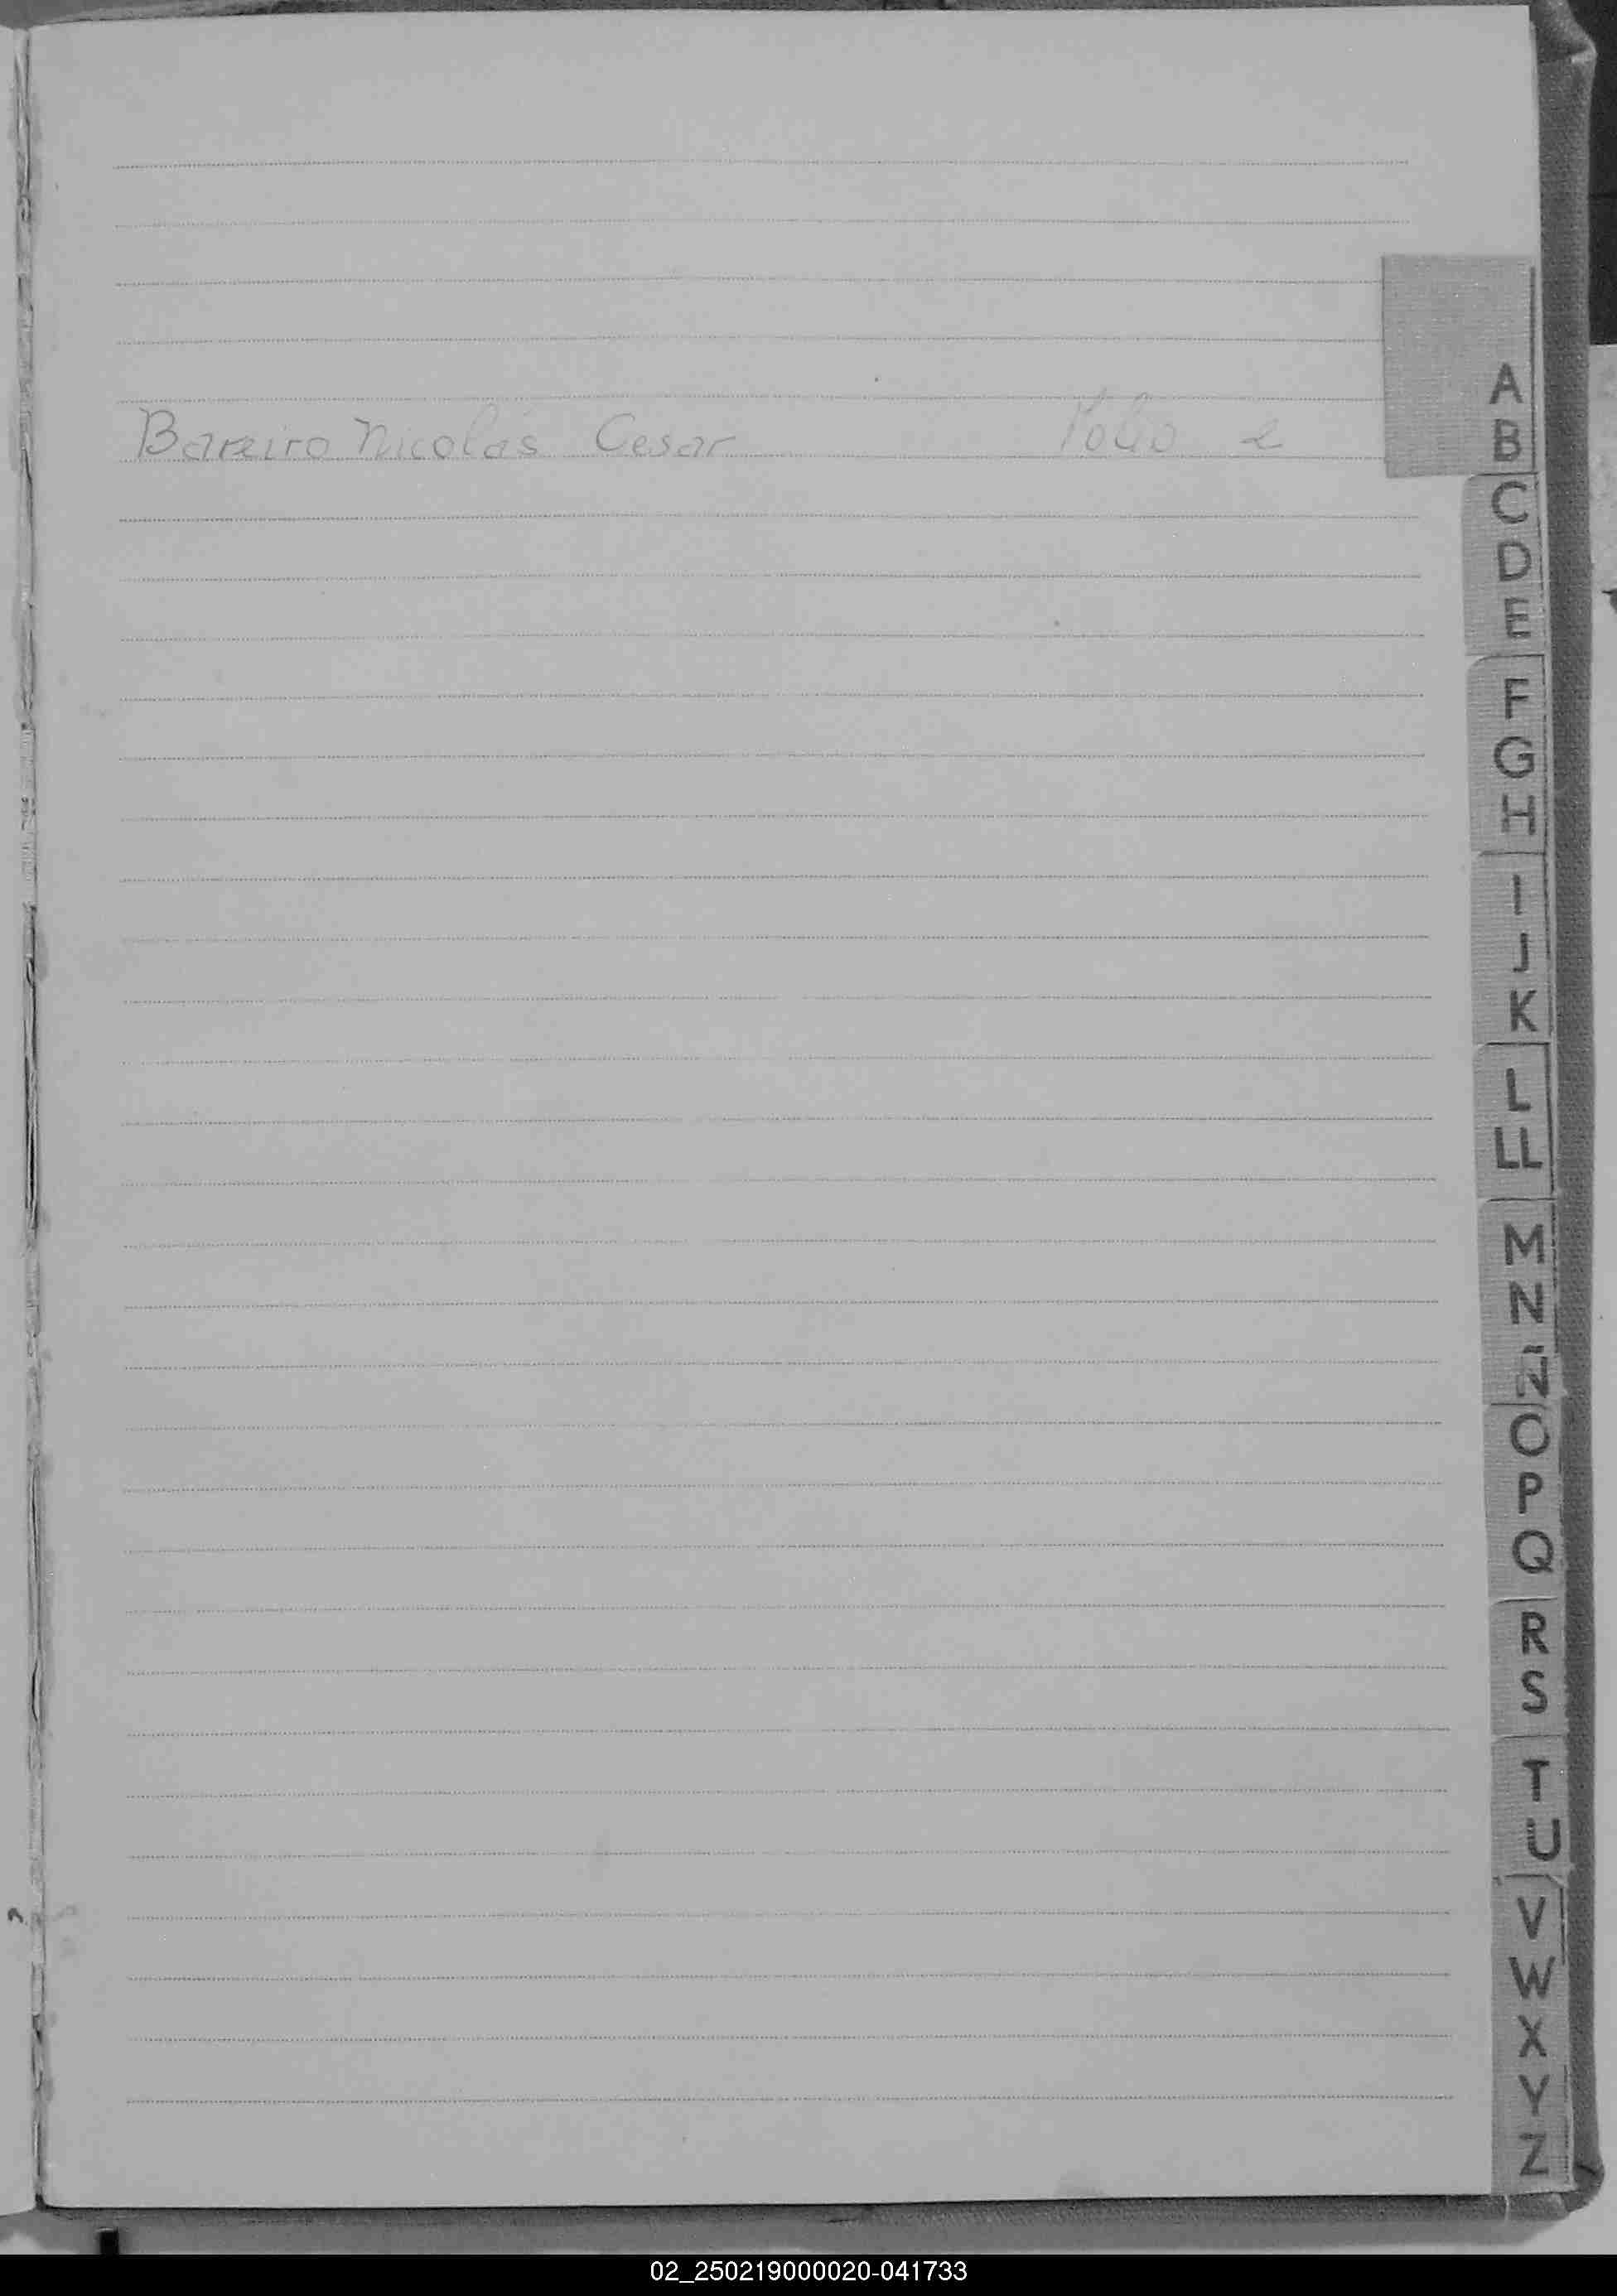 Bareiro Nicolás Cesar Folio 2
A
B
C
D
E
F
G
H
I
J
K
L
LL
M
N
Ñ
O
P
Q
R
S
T
U
V
W
X
Y
Z
02_250219000020-041733